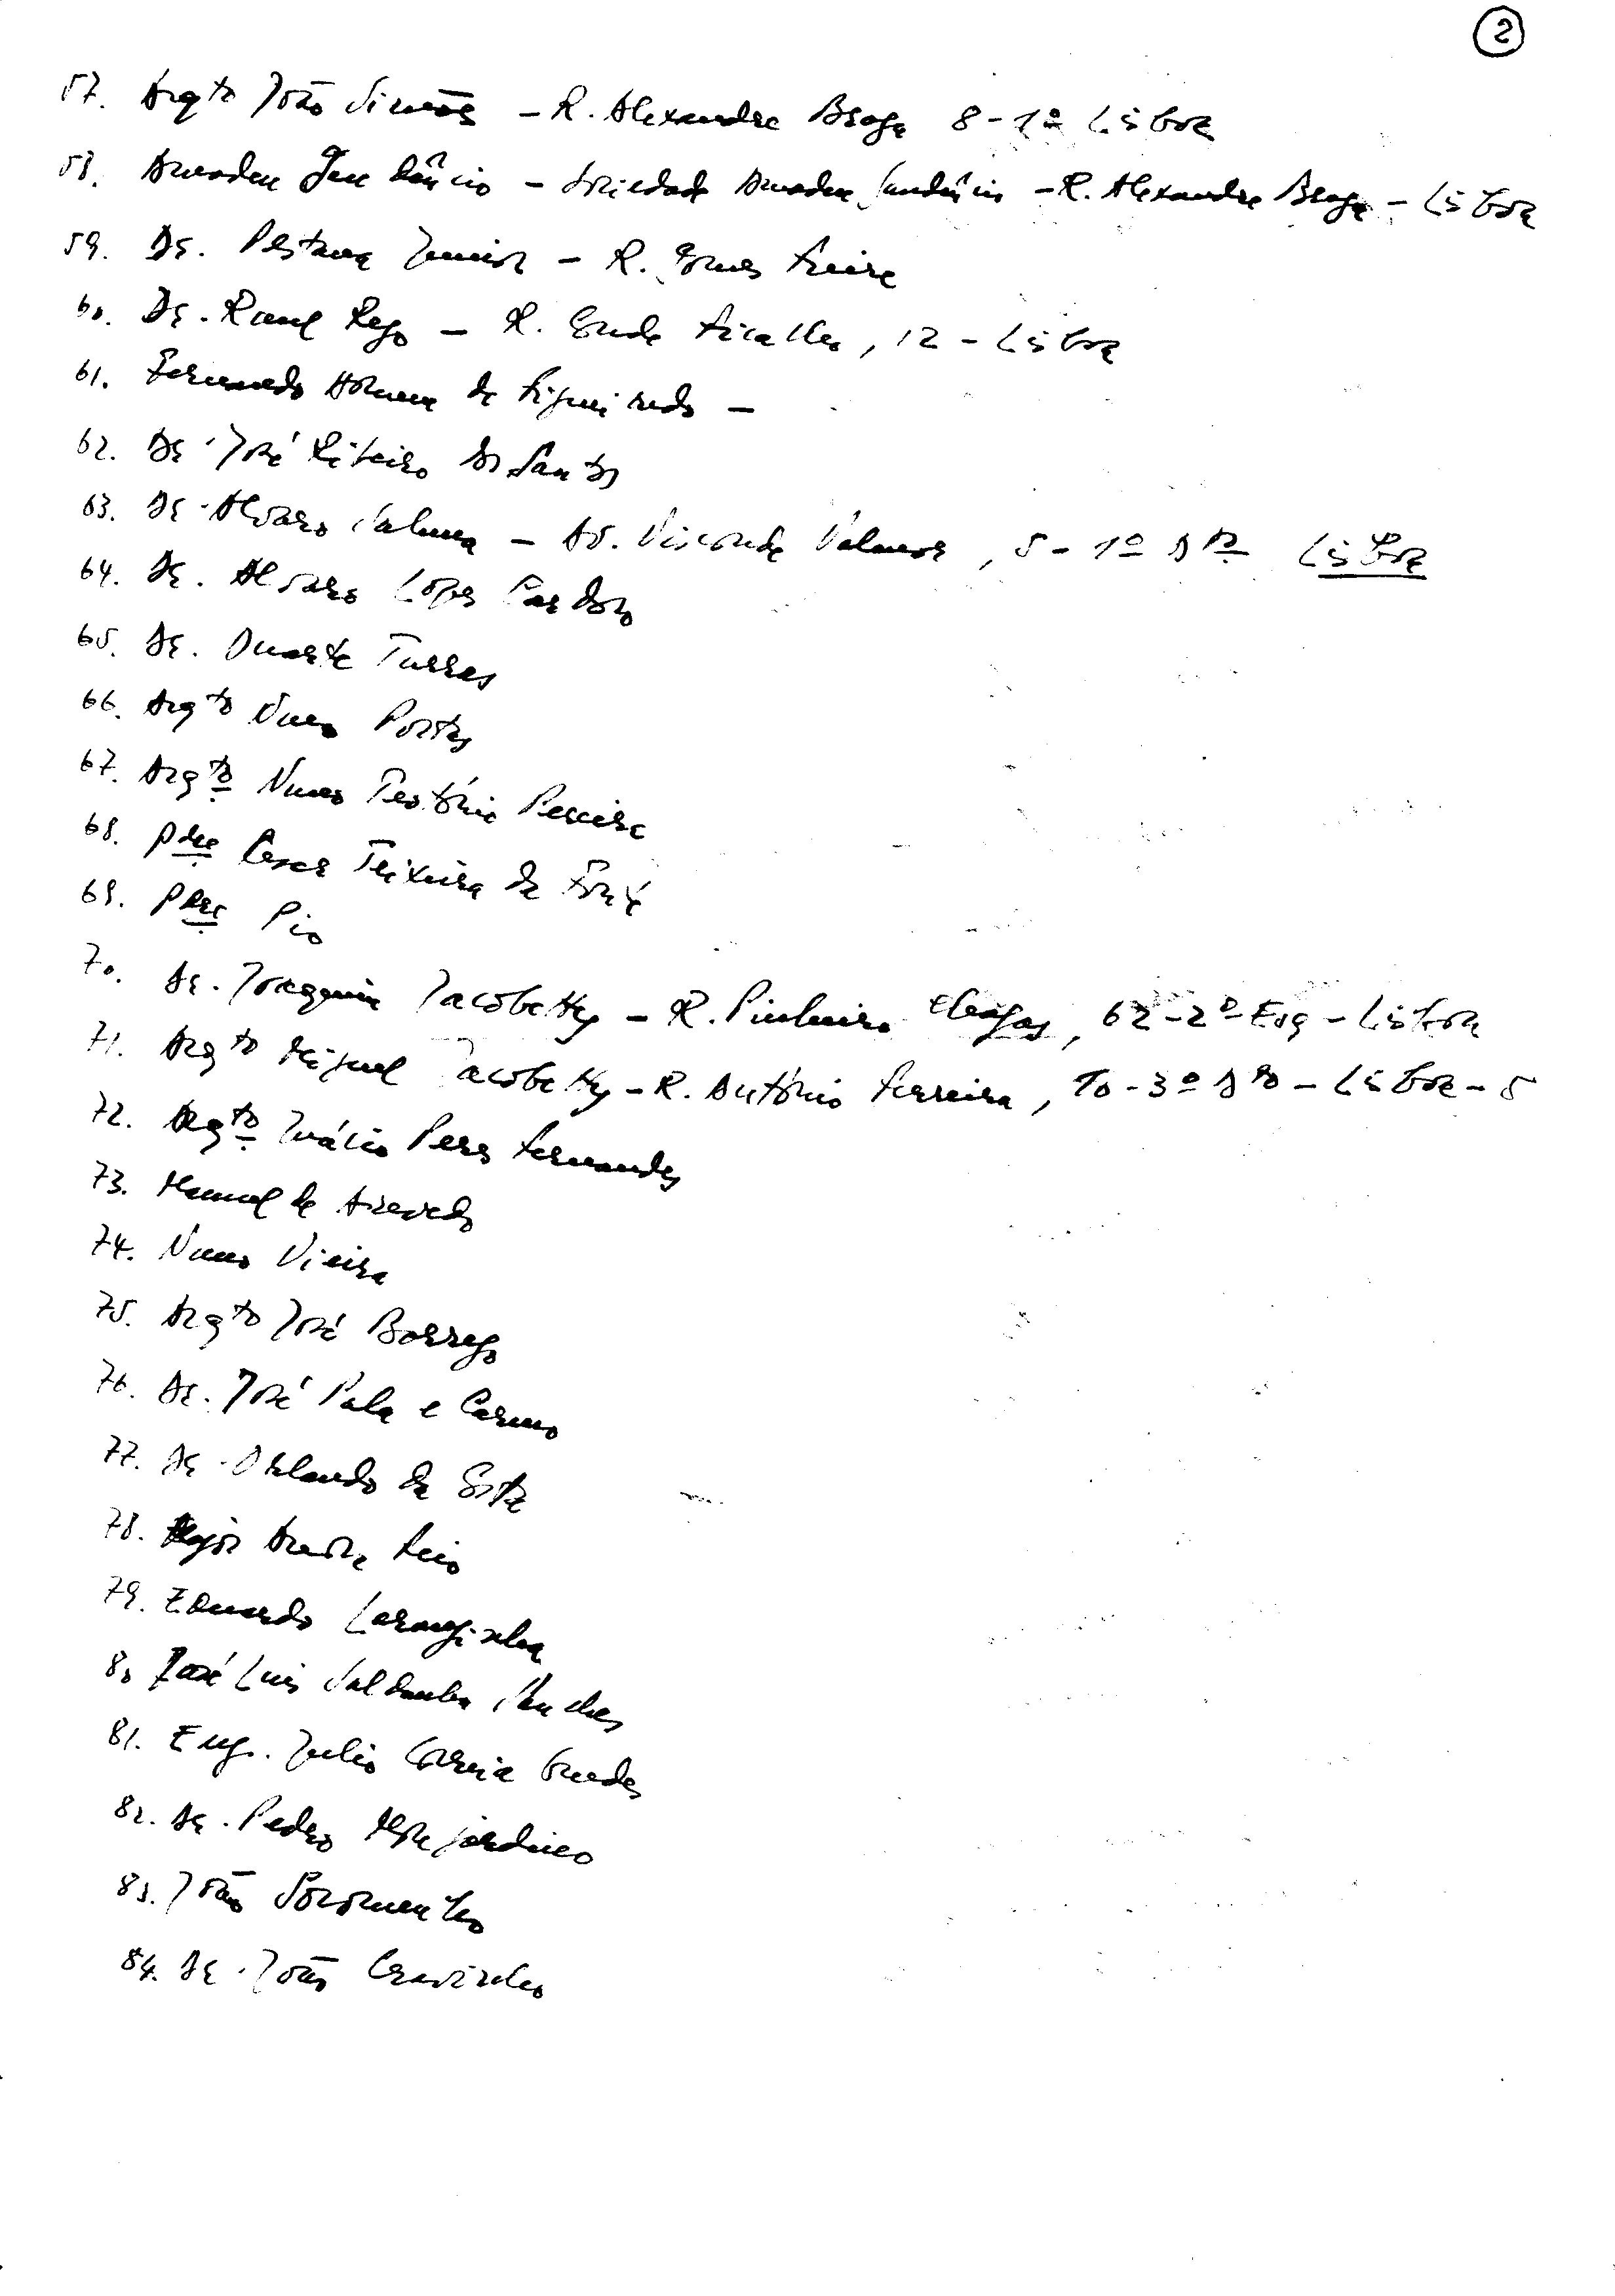 2
57. Arqto João Simões – R. Alexandre Braga 8-1º Lisboa
58. Amadeu Gaudêncio – Sociedade Amadeu Gaudêncio – R. Alexandre Braga – Lisboa
59. Dr. Pestana Junior – R. Gomes Freire
60. Dr. Raul Rego – R. Conde Ficalho, 12 – Lisboa
61. Fernando Homem de Figueiredo –
62. Dr. José Ribeiro dos Santos
63. Dr. Alvaro Salema – Av. Visconde Valmor, 5-1º Dto Lisboa
64. Dr. Alvaro Lopes Cardoso
65. Dr. Duarte Turras
66. Arqto Nuno Portas
67. Arqto Nuno Teotónio Pereira
68. Pdre Cesar Teixeira da
69. Pdre Pio
70. Dr. Joaquim Jacobetty – R. Pinheiro Chagas, 62-2º Esq – Lisboa
71. Arqto Miguel Jacobetty – R. António Ferreira, 10-3º Dto – Lisboa – 5
72. Arqto Inácio Peres Fernandes
73. Manuel de Azevedo
74. Nuno Vieira
75. Arqto José Borrego
76. Dr. José Pala e Carmo
77. Dr. Orlando da Costa
78.
79. Eduardo Laranjinha
80 José Luis Saldanha Sanches
81. Eng. Julio Correia Guedes
82. Dr. Pedro Monjardino
83. João Soromenho
84. Dr. João Cravinho